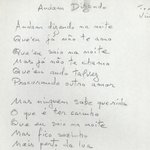 Andam Dizendo
Andam dizendo na noite
Que eu já não te amo
Que eu saio na noite
Mas já não te chama
Que eu ando talvez
Procurando outro amor
Mas ninguem sabe querida
O que é ter carinho
Que eu saio na noite
Mas fico sozinho
Mais perto da lua